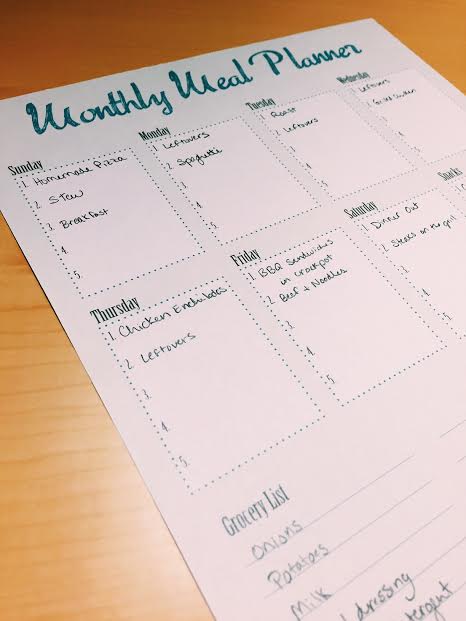 Monthly Meal Planner
Sunday
1. Homemade Pizza
2. Stew
3. Breakfast
4.
5.
Monday
1. Leftovers
2. Spaghetti
3.
4.
5.
Tuesday
1. Roast
2. Leftovers
3.
4.
5.
Wednesday
Leftovers
Chicken
Thursday
1. Chicken Enchiladas
2. Leftovers
3.
4.
5.
Friday
1. BBQ Sandwiches
in crockpot
2. Beef + Noodles
3.
4.
5.
Saturday
1. Dinner Out
2. Steaks on the grill
3.
4.
5.
Snacks
1.
Grocery List
Onions
Potatoes
Milk
dressing